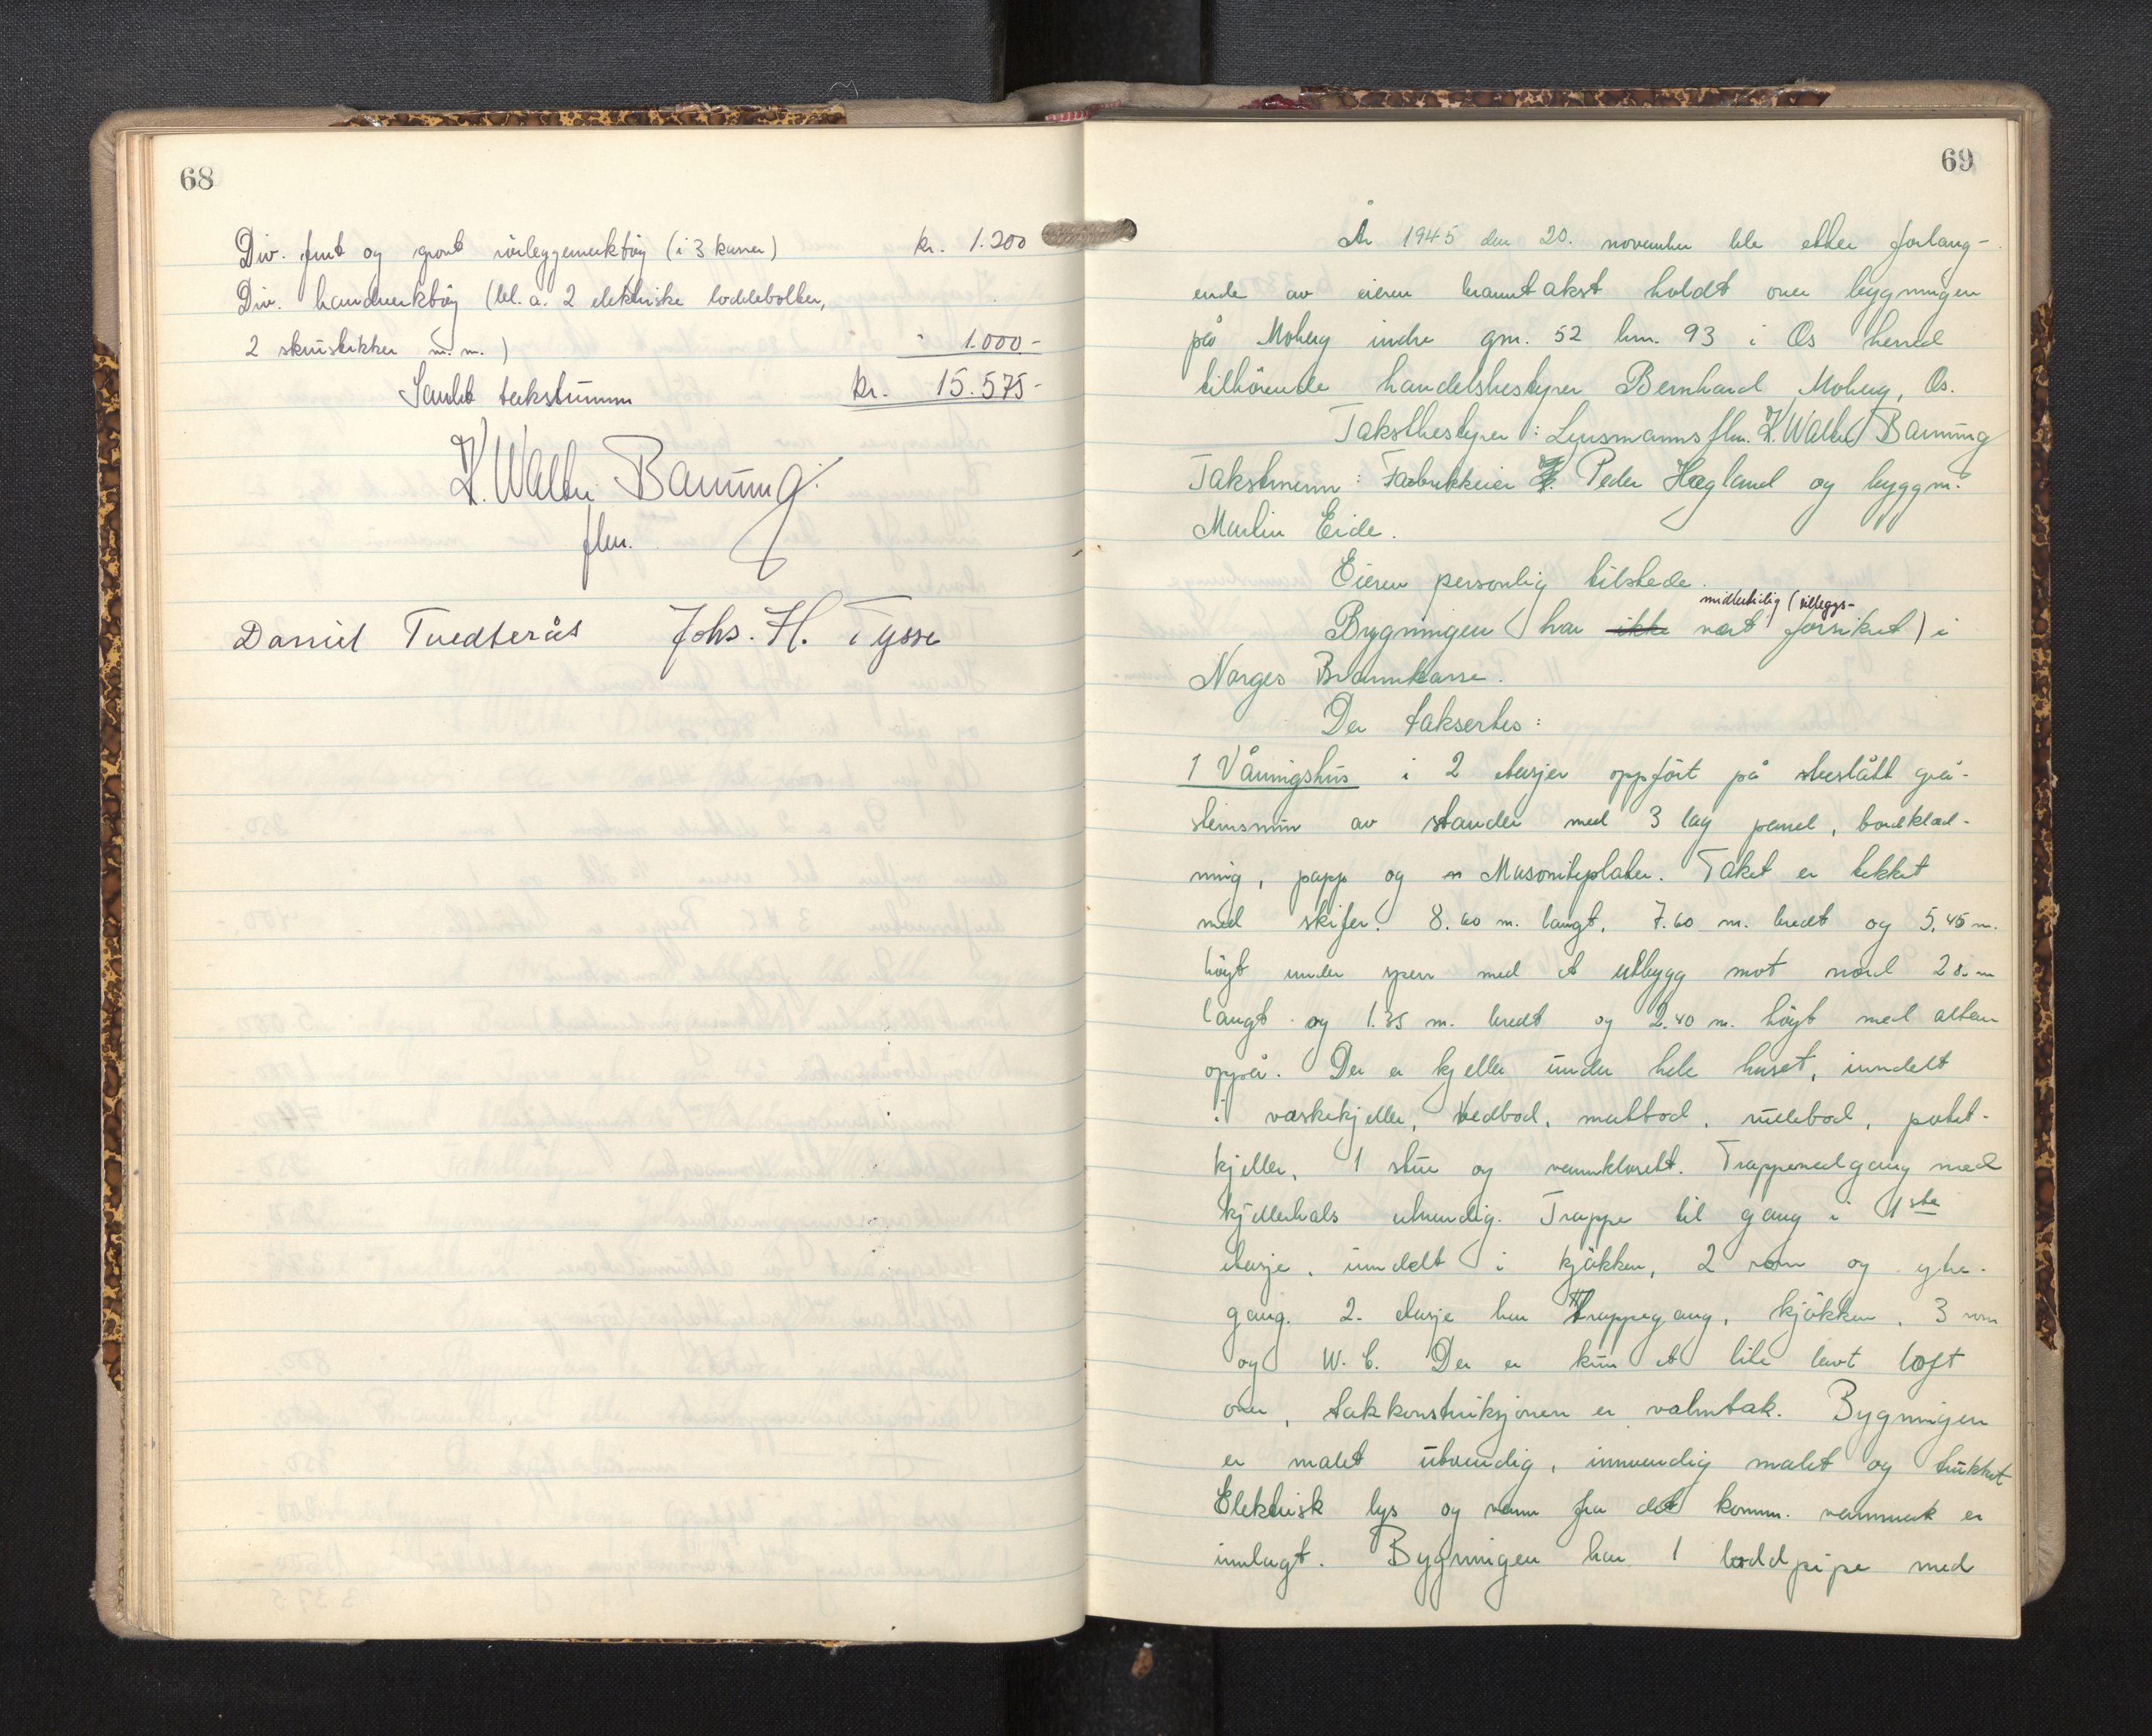 68
Div. fint og grovt rörleggerverktöy (i 3 kasser) kr. 1.200
Div. handverktöy (bl. a. 2 elektriske loddebolter,
2 skrustikker m.m.) " 1.000-
Samlet takstsum kr. 15.575-
K. Walter Banning
flm.
Daniel Tvedterås Johs. H. Tysse
69
År 1945 den 20. november ble etter forlang-
ende av eieren branntakst holdt over bygningen
på Moberg indre gnr. 52 bnr. 93 i Os herred
tilhörende handelsbestyrer Bernhard Moberg, Os.
Takstbestyrer: Lensmannsflm. K. Walter Banning
Takstmenn: Fabrikkeier Peder Hegland og byggm.
Martin Eide.
Eieren personlig tilstede.
midlertidig (tilleggs-
Bygningen har ikke vært forsikret) i
Norges Brannkasse.
Der taksertes:
1 Våningshus i 2 etasjer oppfört på støslått grå-
steinsmur av stender med 3 lag panel, bordklæd-
ning, papp og Masoniteplater. Taket er tekket
med skifer. 8.60 m. langt, 7.60 m. bredt og 5,45 m.
höyt under sperr med et utbygg mot nord m
langt og 1.35 m. bredt og 2.40 m. höyt med altan
oppå. Der er kjeller under hele huset, inndelt
i vaskekjeller, vedbod, matbod, rullebod, potet-
kjeller, 1 stue og vannklosett. Trappenedgang med
kjellerhals utvendig. Trappe til gang i 1ste
etasje, inndelt i kjökken, 2 rom og ytre-
gang. 2. etasje har trappegang, kjökken, 3 rom
og W.C. Der er kun et lite lavt loft
over, takkonstruksjonen er valmtak. Bygningen
er malt utvendig, innvendig malt og trukket
Elektrisk lys og vann fra det komm. vannverk er
innlagt. Bygningen har 1 loddpipe med